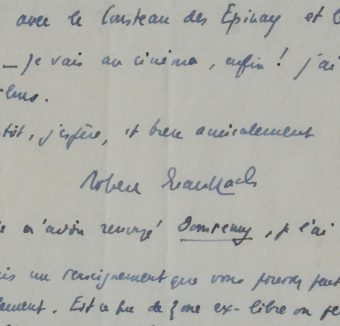 avec le Cousteau des Epinay et l
— Je vais au cinéma, enfin ! j'ai
ilms.
tôt, j'espère, et bien amicalement
Robert
m'avoir renvoyé je l'ai
is un renseignement que vous pouvez peut
lement. Est ce que zone ex-libre ou